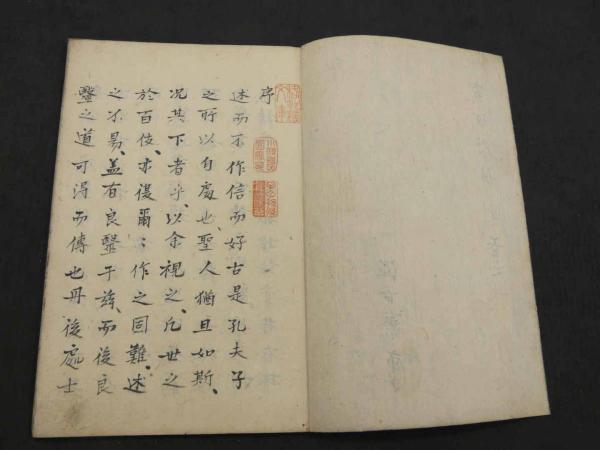 序
述而不作信而好古是孔夫子
之所以自處也、聖人猶且如斯、
况其下者乎、以余視之、凡世之
於百伎、亦復爾〻作之固難、述
之不易、盖有良毉于茲、而後良
毉之道可得而傳也丹後處士